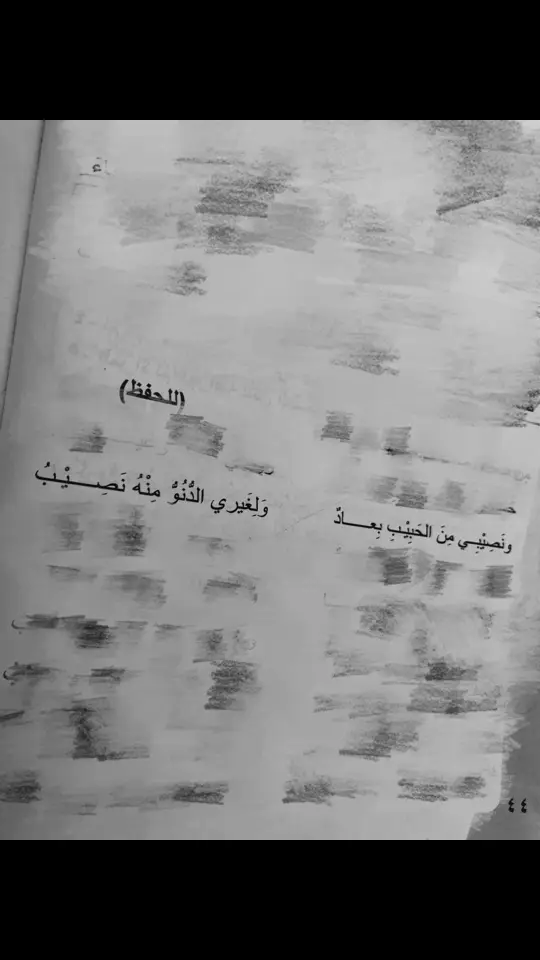 (للحفظ)
ونَصِيْبِـي مِنَ الحَبِيْبِ بِعـــادٌ وَلِغَيري الدُّنُوُّ مِنْهُ نَصِـــيْـــبُ
٤٤